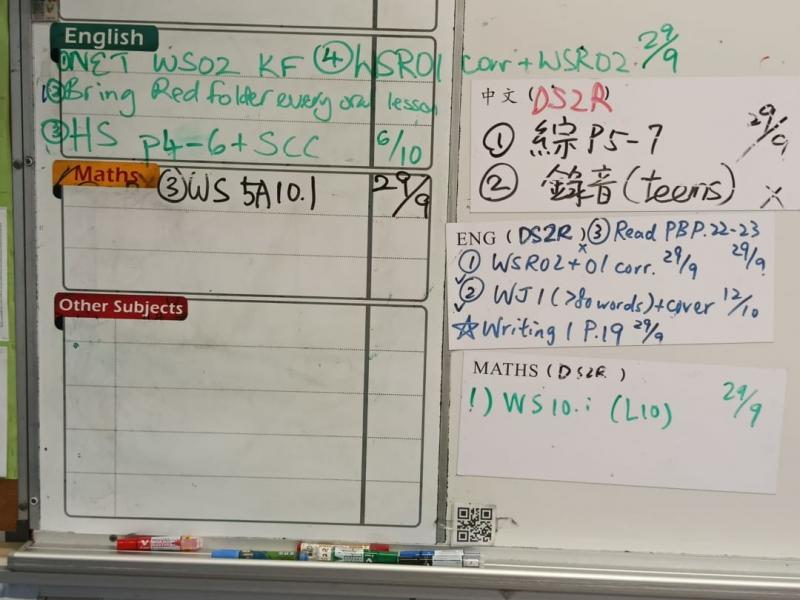 English
①NET WS02 KF ④WSR01 corr+WSR02. 29/9
②Bring Red folder every oral lesson
③HS p4-6+SCC 6/10
Maths
③WS 5A10.1 29/9
Other Subjects
中文 (DS2R)
① 綜P5-7 29/9
② 錄音(teems)
ENG (DS2R) ③Read PBP.22-23 29/9
① WSR02+01 corr. 29/9
② WJ1(>80words)+cover 12/10
☆Writing 1 P.19 29/9
MATHS (DS2R)
1) WS10.1 (L10) 29/9